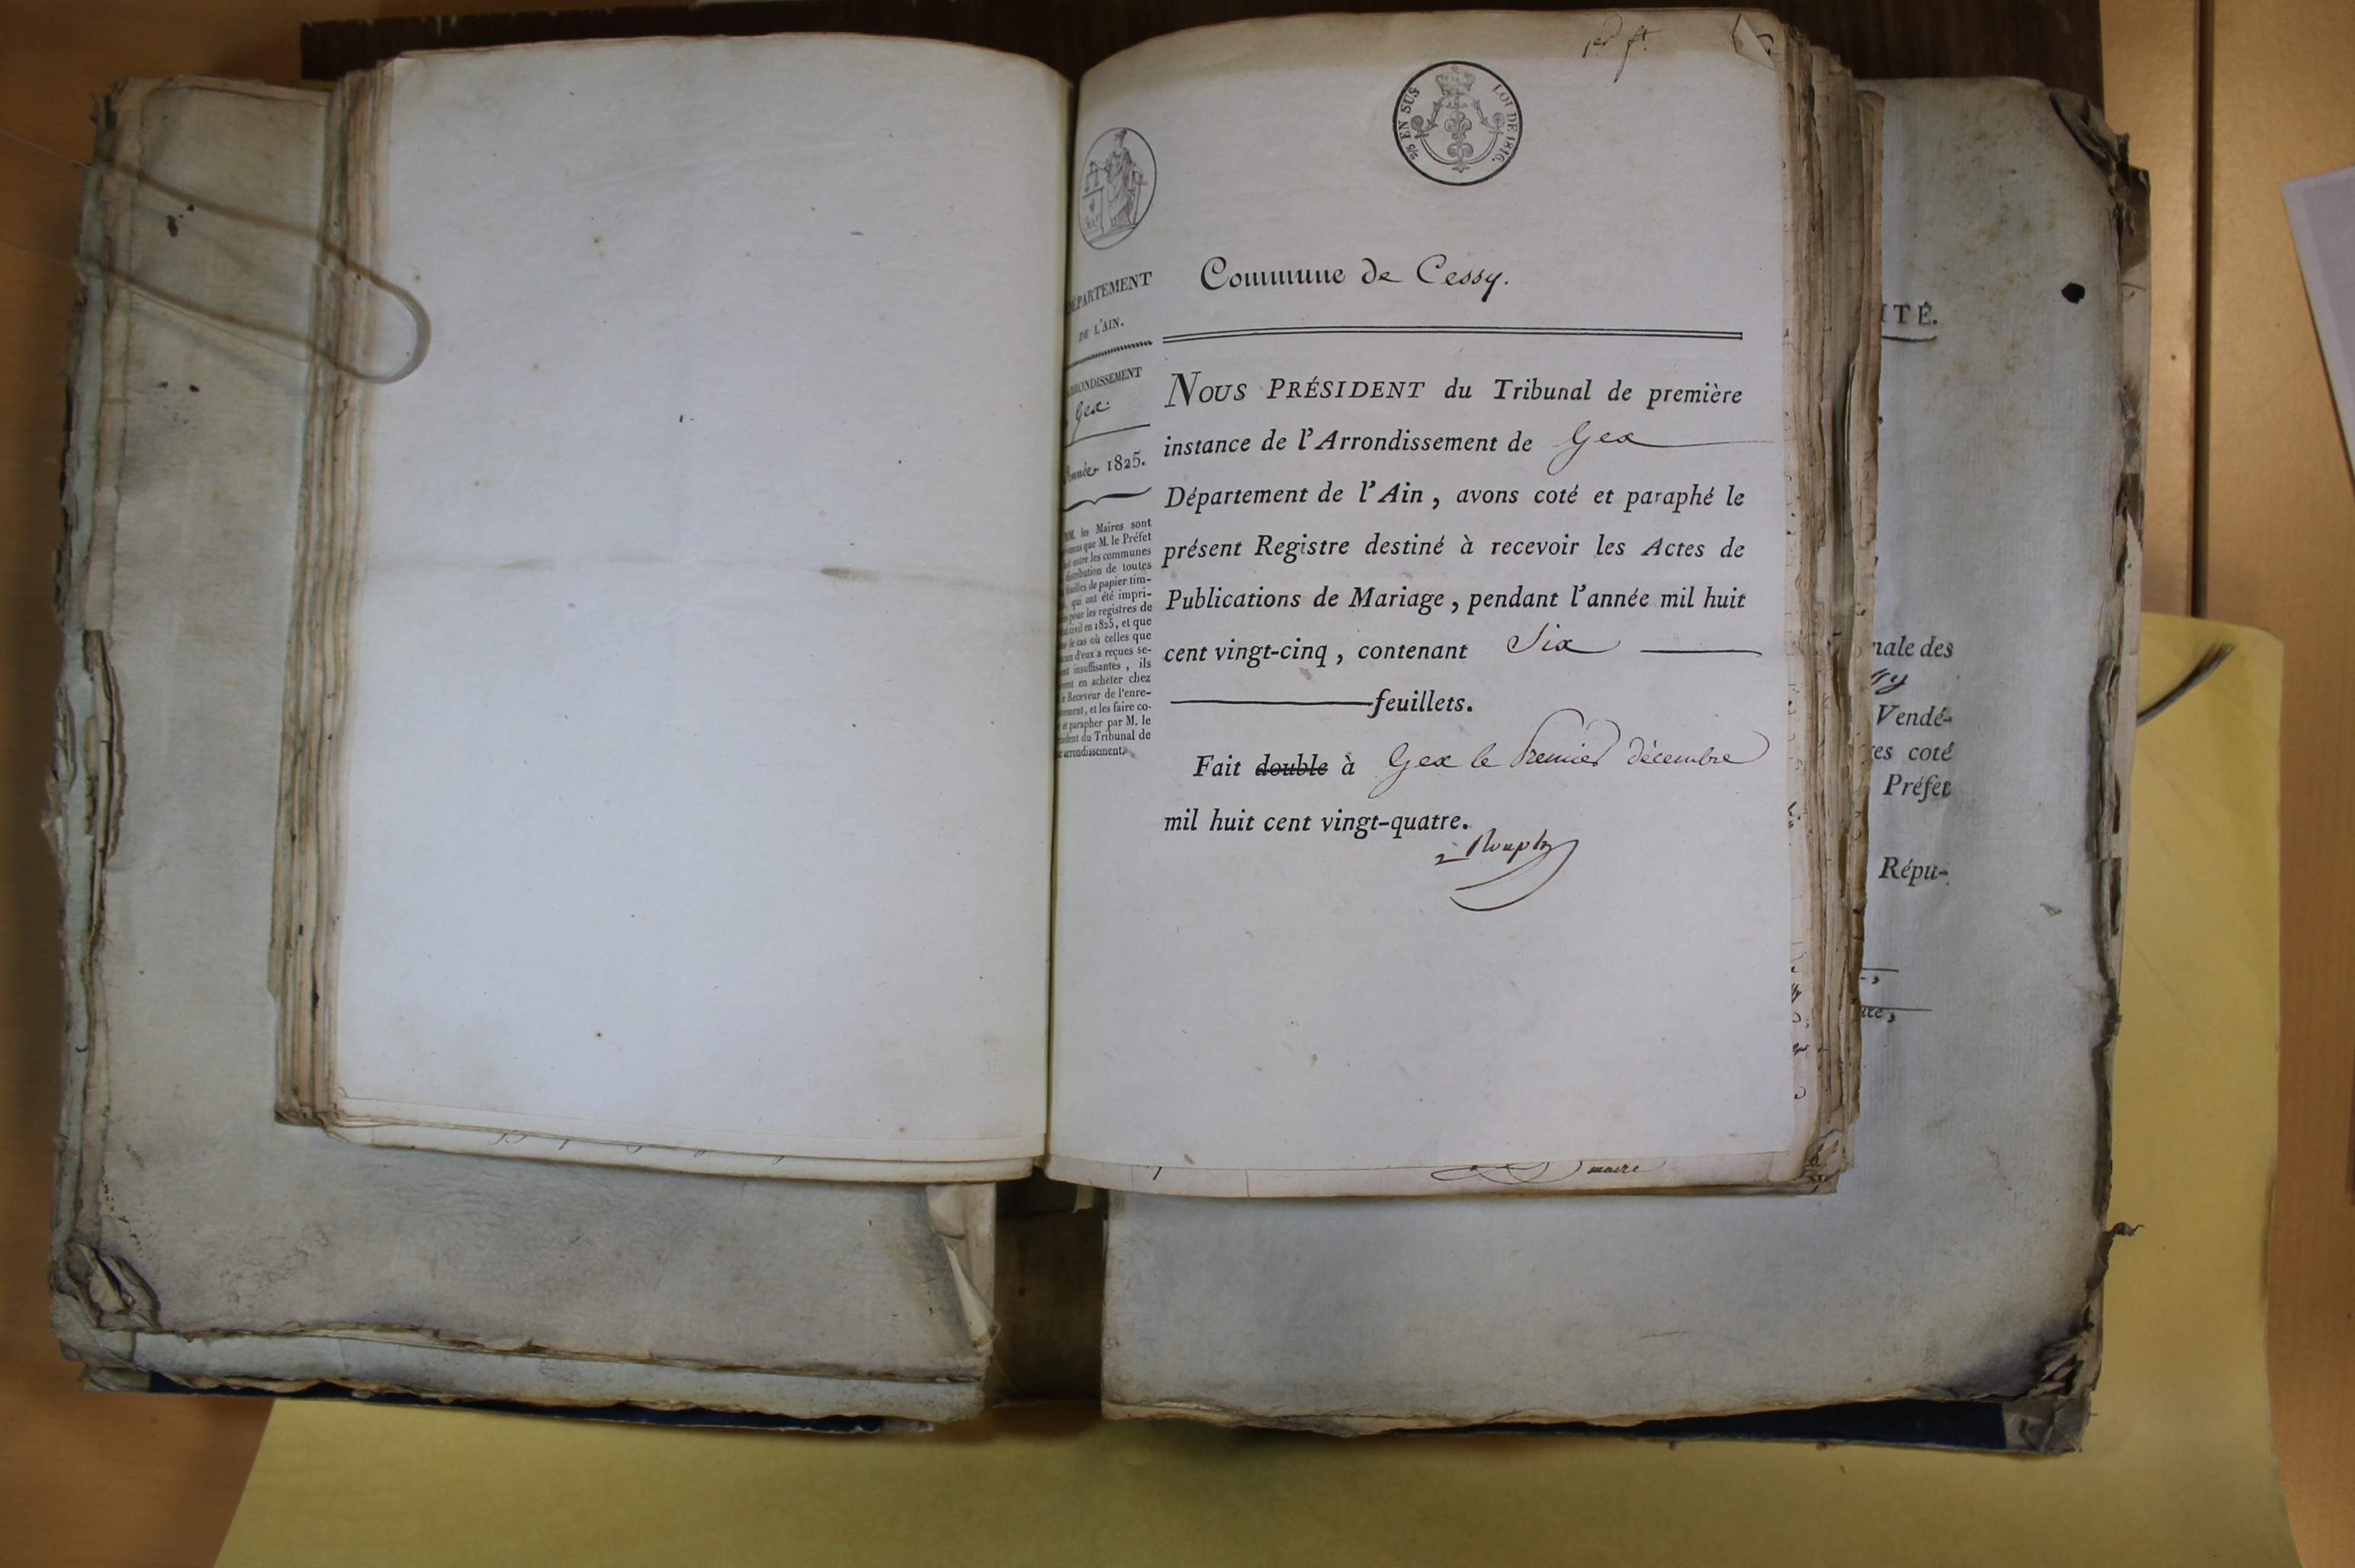 1er ft.
2/5 EN SUS
LOI DE 1816.
Commune de Cessy.
DÉPARTEMENT
DE L'AIN.
ARRONDISSEMENT
Gex
Année 1825.
MM. les Maires sont
que M. le Préfet
entre les communes
distribution de toutes
feuilles de papier tim-
qui ont été impri-
pour les registres de
civil en 1825, et que
le cas où celles que
d'eux a reçues se-
insuffisantes, ils
en acheter chez
Receveur de l'enre-
et les faire co-
et parapher par M. le
du Tribunal de
arrondissement.
NOUS PRÉSIDENT du Tribunal de première
instance de l'Arrondissement de Gex
Département de l'Ain, avons coté et paraphé le
présent Registre destiné à recevoir les Actes de
Publications de Mariage, pendant l'année mil huit
cent vingt-cinq, contenant Six
feuillets.
Fait double à Gex le Premier décembre
mil huit cent vingt-quatre.
maire
ITÉ.
nale des
Vendé-
es coté
Préfet
Répu-